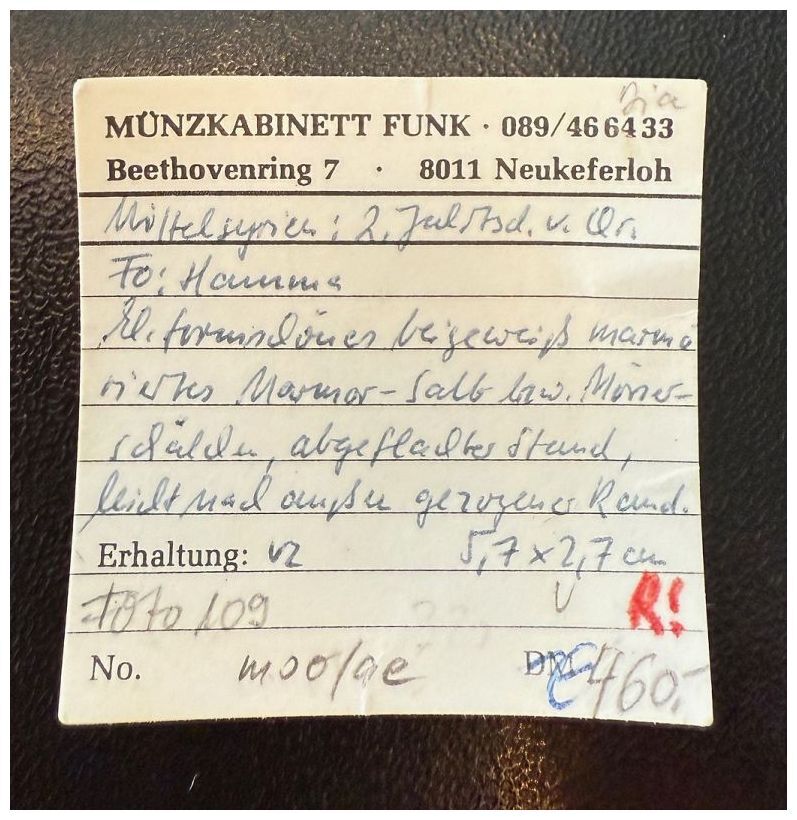 Dia
MÜNZKABINETT FUNK · 089/46 64 33
Beethovenring 7 · 8011 Neukeferloh
Mittelsyrien: 2. Jahrtsd. v. Chr.
FO: Hamma
Kl. formschönes beigeweiß marmo
riertes Marmor-Salb bzw. Mörser-
schälchen, abgeflachter Stand,
leicht nach außen gezogener Rand.
Erhaltung: vz 5,7 x 2,7 cm
Foto 109 R!
No. DM € 460.-